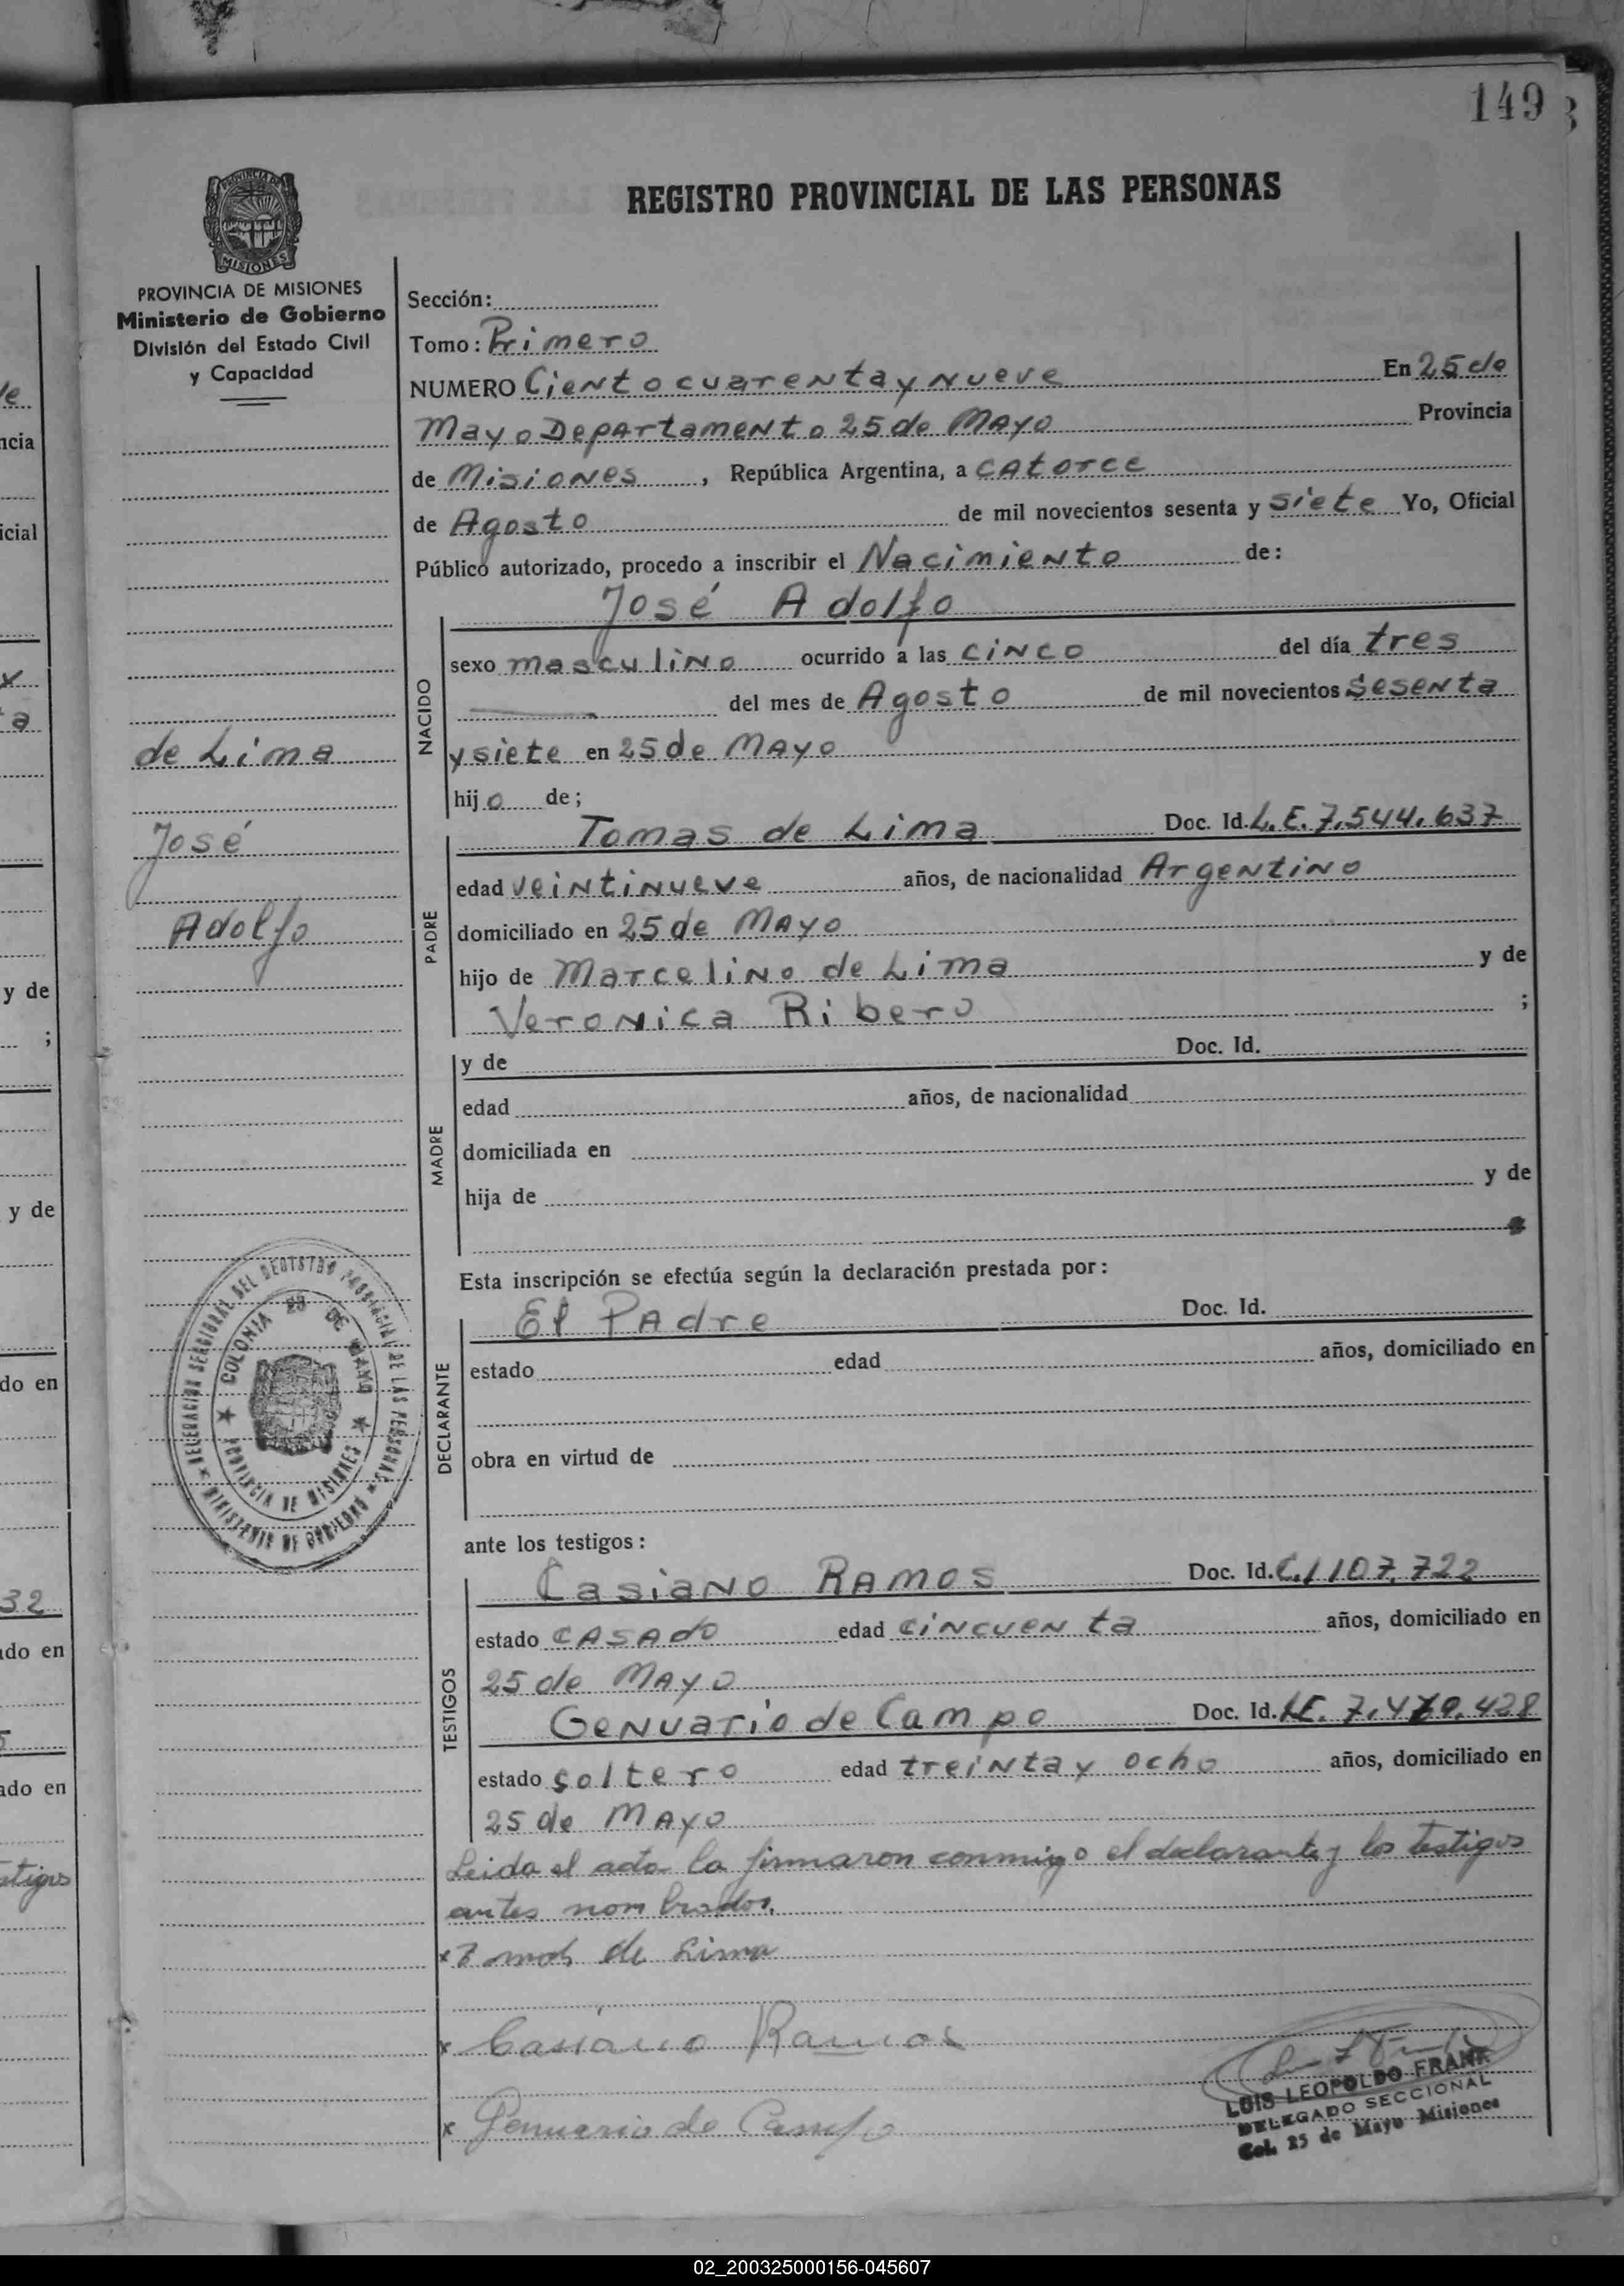 149
REGISTRO PROVINCIAL DE LAS PERSONAS
PROVINCIA DE
MISIONES
PROVINCIA DE MISIONES
Ministerio de Gobierno
División del Estado Civil
y Capacidad
Sección:
Tomo: Primero
NUMERO Ciento cuarenta y nueve En 25 de
Mayo Departamento 25 de Mayo Provincia
de Misiones, República Argentina, a catorce
de Agosto de mil novecientos sesenta y siete Yo, Oficial
Público autorizado, procedo a inscribir el Nacimiento de:
José Adolfo
NACIDO
sexo masculino ocurrido a las cinco del día tres
del mes de Agosto de mil novecientos sesenta
y siete en 25 de Mayo
de Lima
José
Adolfo
hijo de;
Tomas de Lima Doc. Id. L.E. 7.544.637
PADRE
edad veintinueve años, de nacionalidad Argentino
domiciliado en 25 de Mayo
hijo de Marcelino de Lima y de
Veronica Ribero ;
MADRE
y de Doc. Id.
edad años, de nacionalidad
domiciliada en
hija de y de
Esta inscripción se efectúa según la declaración prestada por:
El Padre Doc. Id.
DECLARANTE
estado edad años, domiciliado en
obra en virtud de
COLONIA 25 DE MAYO
PROVINCIA DE MISIONES
MINISTERIO DE GOBIERNO
ante los testigos:
Casiano Ramos Doc. Id. C.I 107.722
TESTIGOS
estado casado edad cincuenta años, domiciliado en
25 de Mayo
Genuario de Campo Doc. Id. LE.
estado soltero edad treinta y ocho años, domiciliado en
25 de Mayo
Leida el acta la firmaron conmigo el declarante y los testigos
antes nombrados.
x de Lima
x Casiano Ramos
x Genuario de Campo
LUIS LEOPOLDO FRANK
DELEGADO SECCIONAL
Col. 25 de Mayo Misiones
y de
;
y de
do en
32
do en
ado en
02_200325000156-045607